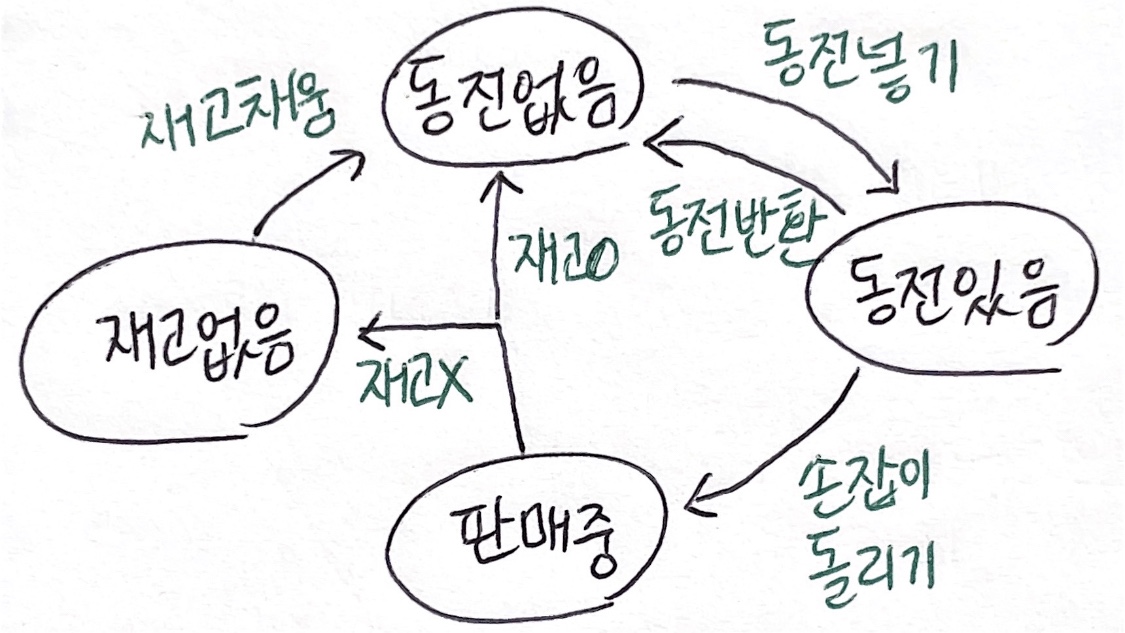 동전없음
동전넣기
재고채움
동전반환
재고O
동전있음
재고없음
재고X
손잡이
돌리기
판매중